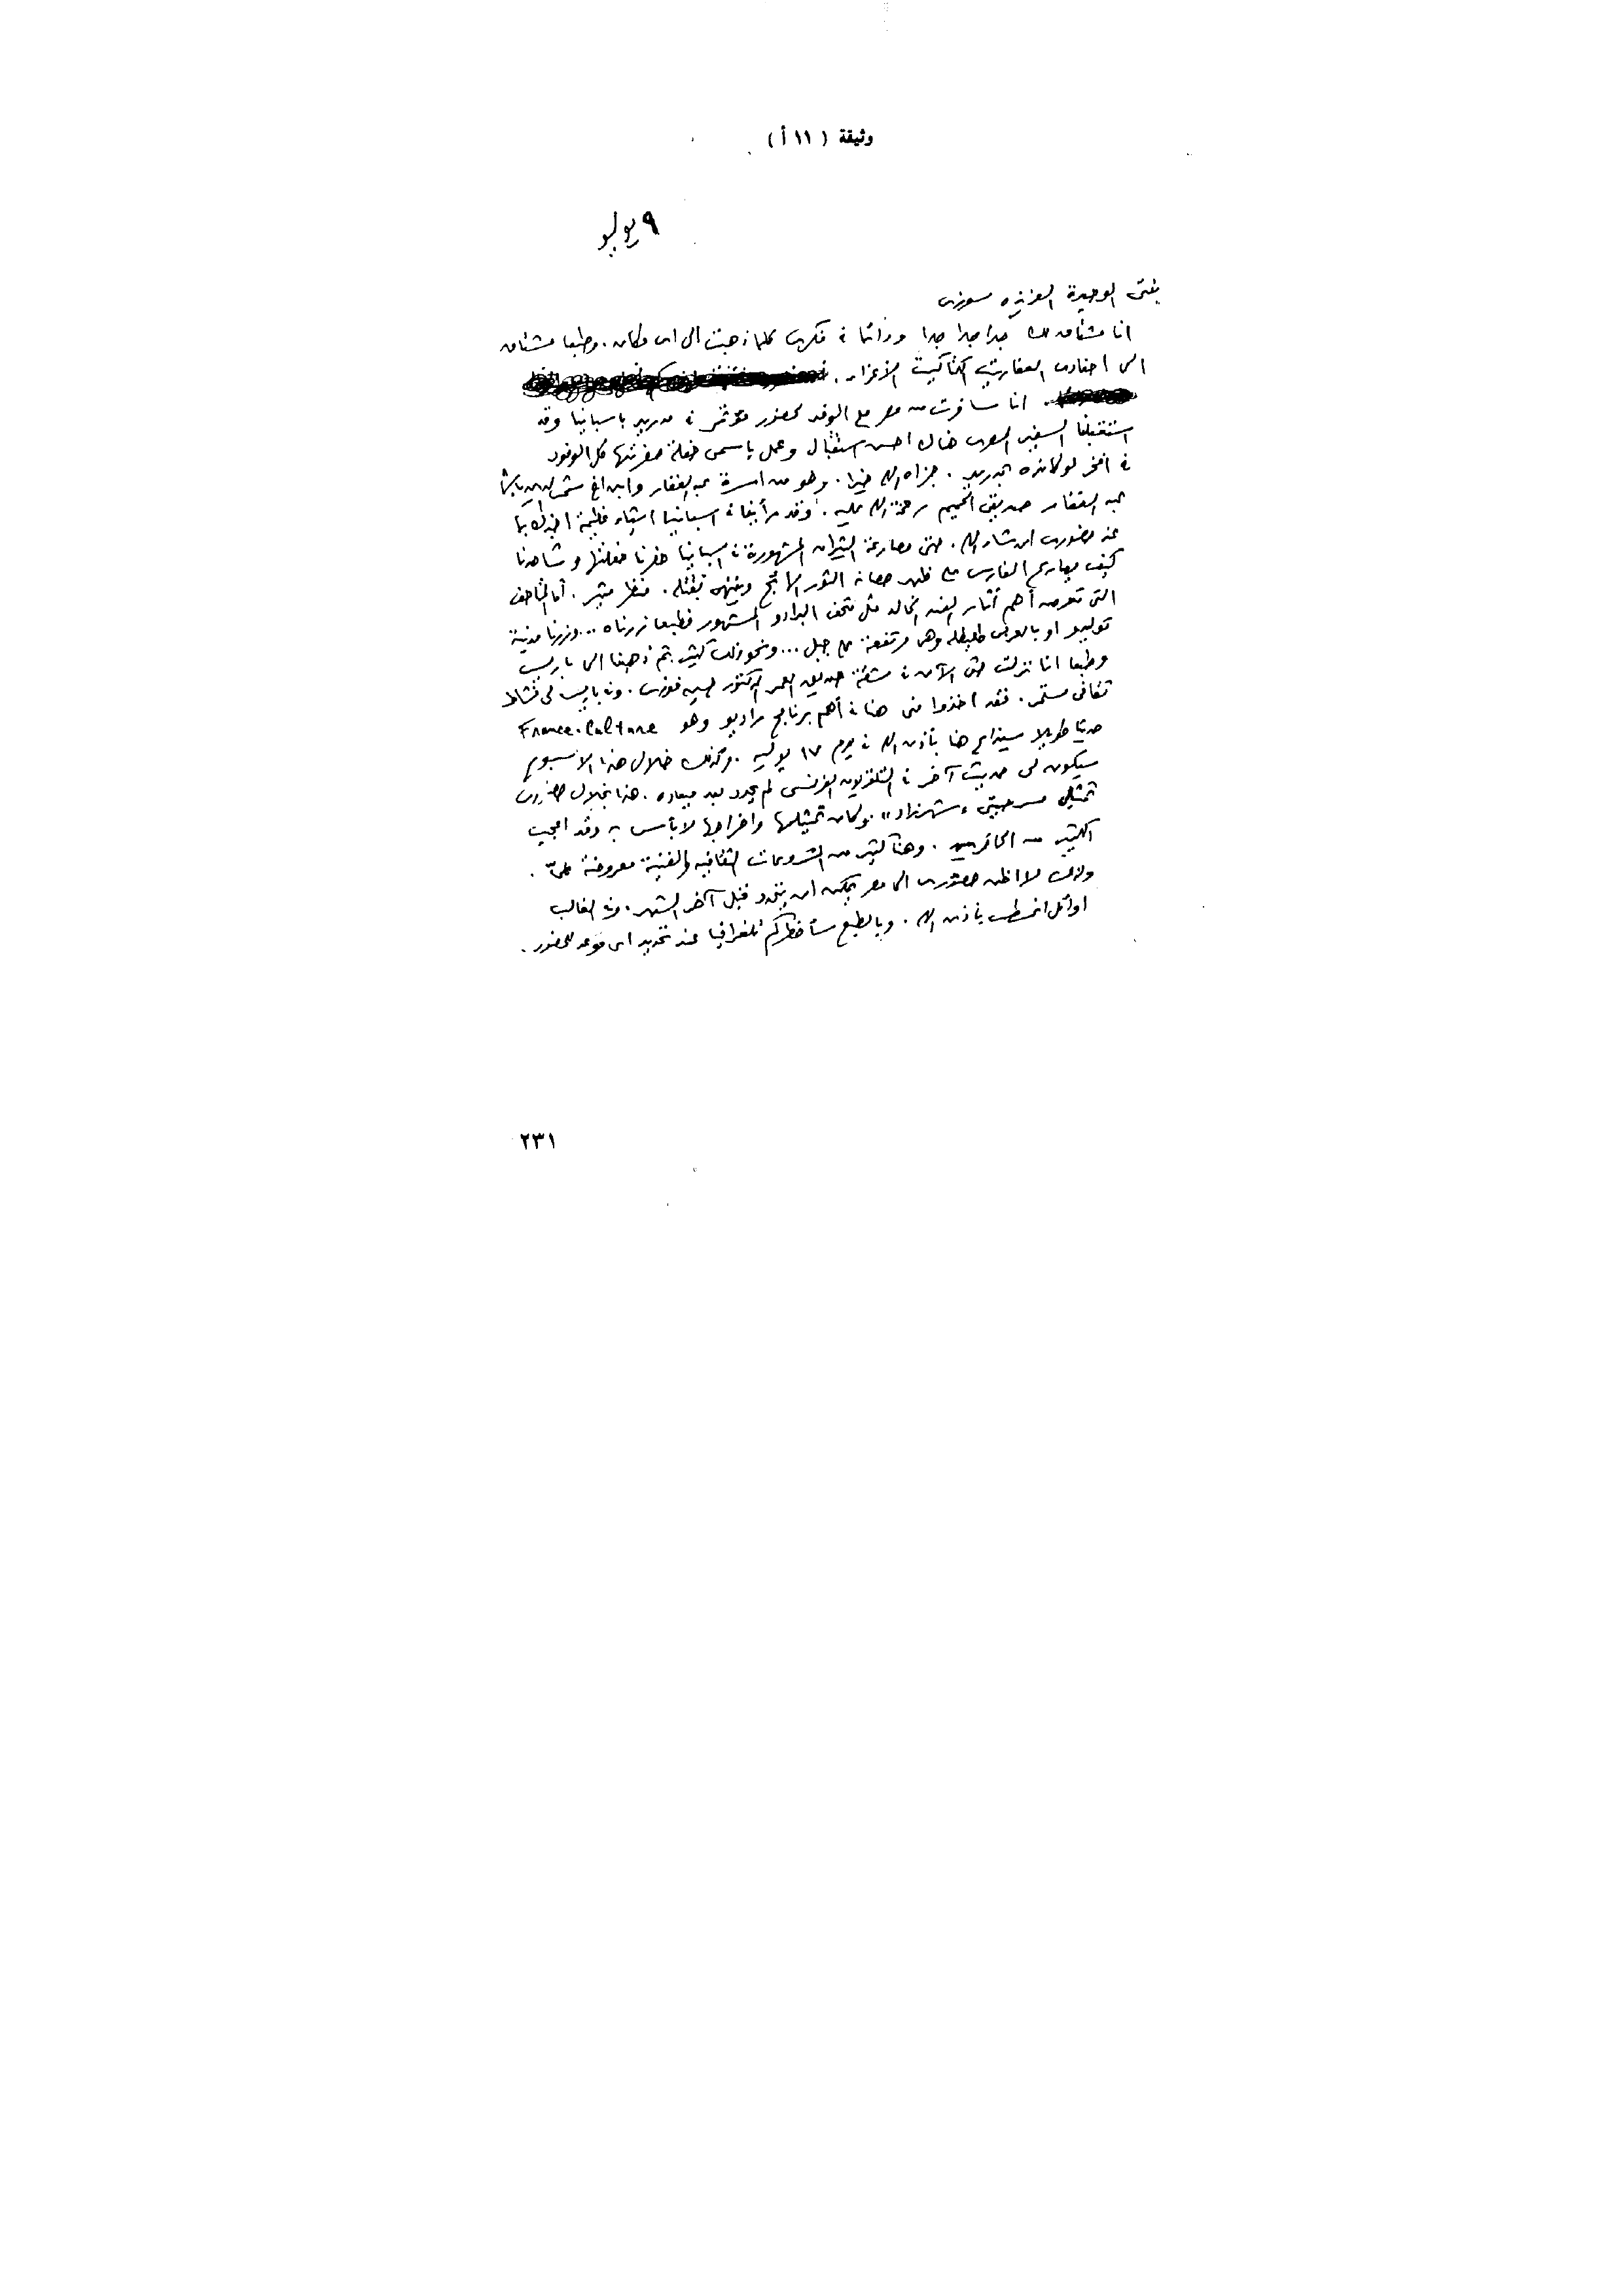 وثيقة (١١ أ)
٩ يوليو
بنتى الوحيدة العزيزه
انا مشتاق لك جدا جدا جدا ودائما فى فكرى كلما ذهبت الى اى مكان. وطبعا مشتاق
الى احفادى العفاريت الكتاكيت الأعزاء.
انا سافرت من مصر مع الوفد لحضور مؤتمر فى مدريد باسبانيا وقد
استقبلنا السفير المصرى هناك احسن استقبال وعمل باسمى حفلة حضرتها كل الوفود
فى افخر لوكانده بمدريد. جزاه الله خيرا. وهو من اسرة عبد الغفار وابن اخ
عبد الغفار صديقى الحميم رحمة الله عليه. وقد رأينا فى اسبانيا اشياء عظيمة اخبرك بها
عند حضورى ان شاء الله. حتى مصارعة الثيران المشهورة فى اسبانيا حضرنا حفلتها وشاهدنا
كيف يصارع الفارس على ظهر حصانه الثور الهائج وينتهى بقتله. منظر مثير. أما المتاحف
التى تعرض أهم آثار الفن الخالد مثل متحف البرادو المشهور فطبعا زرناه... وزرنا مدينة
توليدو او بالعربى طليطله وهى مرتفعة على جبل... ونحو ذلك كثير ثم ذهبنا الى باريس
وطبعا انا نزلت حتى الآن فى شقة صديق العمر الدكتور حسين فوزى. وفى باريس لى نشاط
ثقافى مستمر. فقد اخذوا منى هنا فى أهم برنامج راديو وهو France-Culture
حديثا طويلا سيذاع هنا بأذن الله فى يوم ١٧ يوليه. وكذلك خلال هذا الاسبوع
سيكون لى حديث آخر فى التلفزيون الفرنسى لم يحدد بعد ميعاده. هذا بخلال حضورى
تمثيل مسرحيتى "شهرزاد" وكان تمثيلها واخراجها لا بأس به وقد اعجب
الكثير من الحاضرين. وهناك كثير من المشروعات الثقافيه والفنية معروضة علىّ.
ولذلك لا اظن حضورى الى مصر يمكن ان يتحدد قبل آخر الشهر. وفى الغالب
اوائل اغسطس بأذن الله. وبالطبع سأخطركم تلغرافيا عند تحديد اى موعد للحضور.
٢٣١